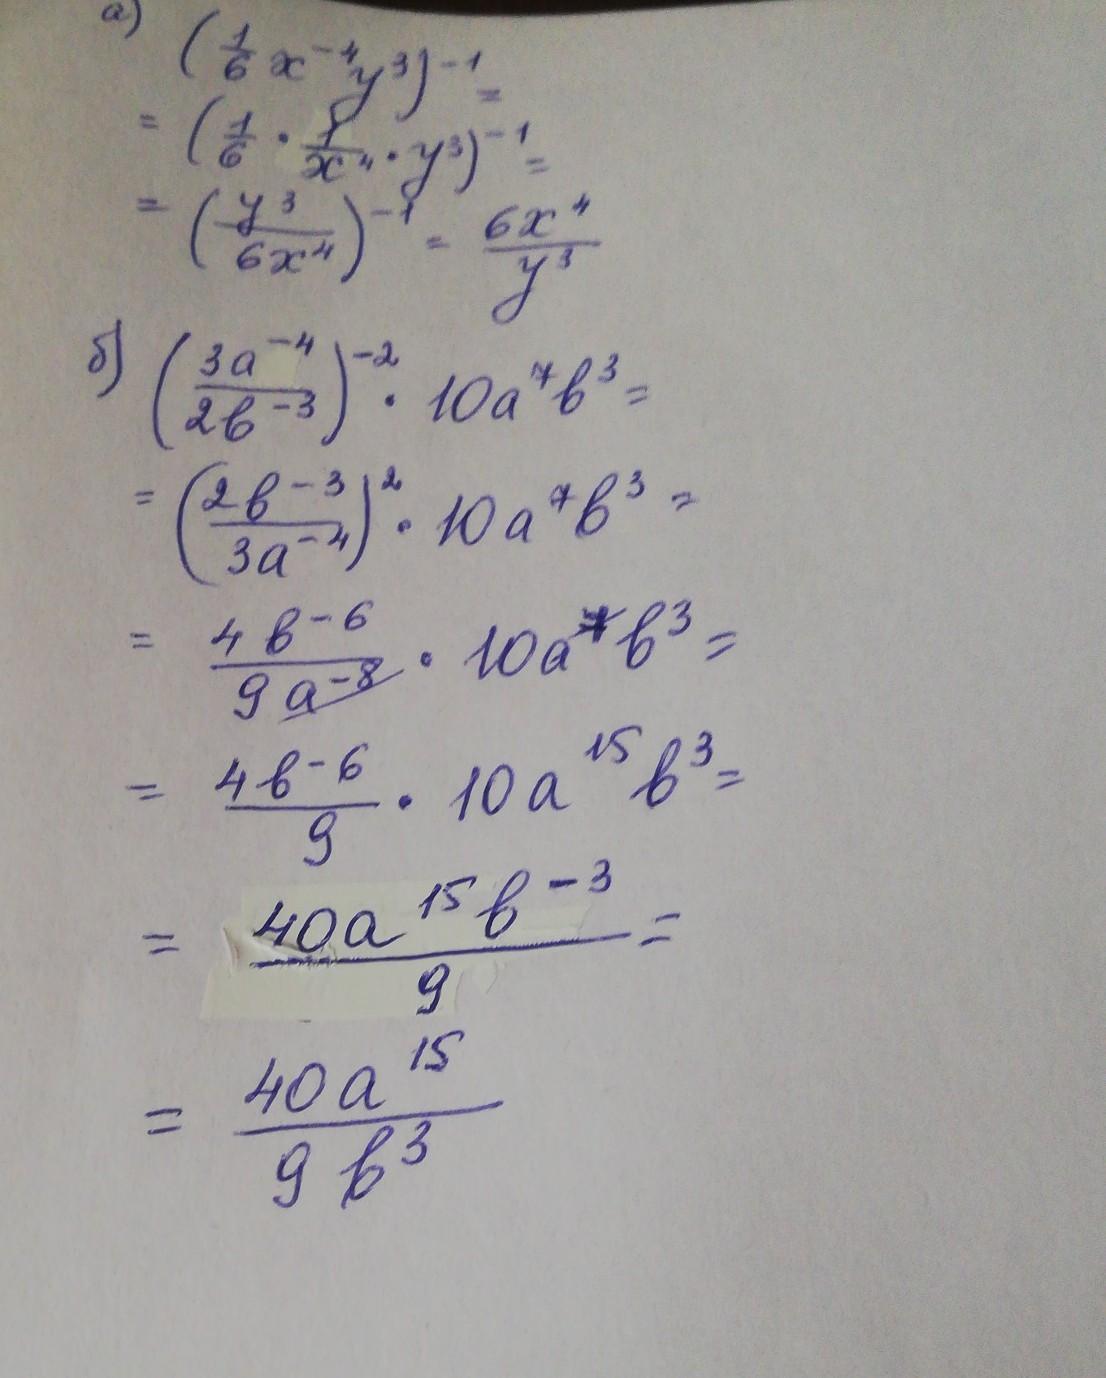 а) (1/6 x⁻⁴y³)⁻¹ =
= (1/6 · 1/x⁴ · y³)⁻¹ =
= (y³/6x⁴)⁻¹ = 6x⁴/y³
б) (3a⁻⁴/2b⁻³)⁻² · 10a⁷b³ =
= (2b⁻³/3a⁻⁴)² · 10a⁷b³ =
= 4b⁻⁶/9a⁻⁸ · 10a⁷b³ =
= 4b⁻⁶/9 · 10a¹⁵b³ =
= 40a¹⁵b⁻³/9 =
= 40a¹⁵/9b³